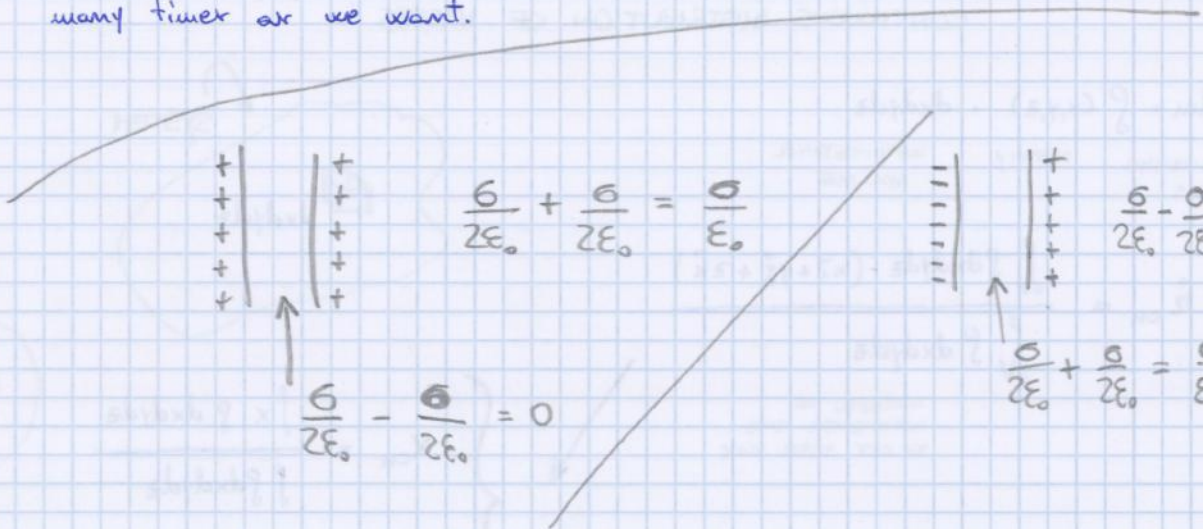 many times as we want.
+ + - +
+ + - +
+ + - +
+ + - +
+ + - +
σ/2ε₀ + σ/2ε₀ = σ/ε₀
σ/2ε₀ - σ/2ε₀ = 0
σ/2ε₀ - σ/2ε
σ/2ε₀ + σ/2ε₀ =